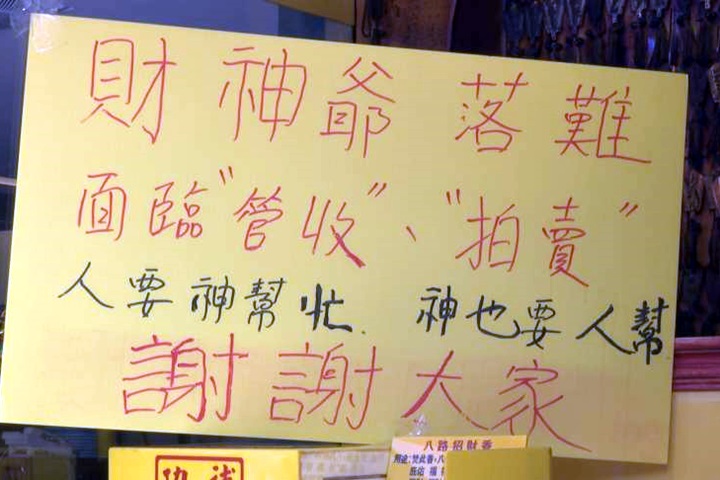 財神爺落難
面臨"管收"、"拍賣"
人要神幫忙. 神也要人幫
謝謝大家
八路招財香
用途:焚此香,八